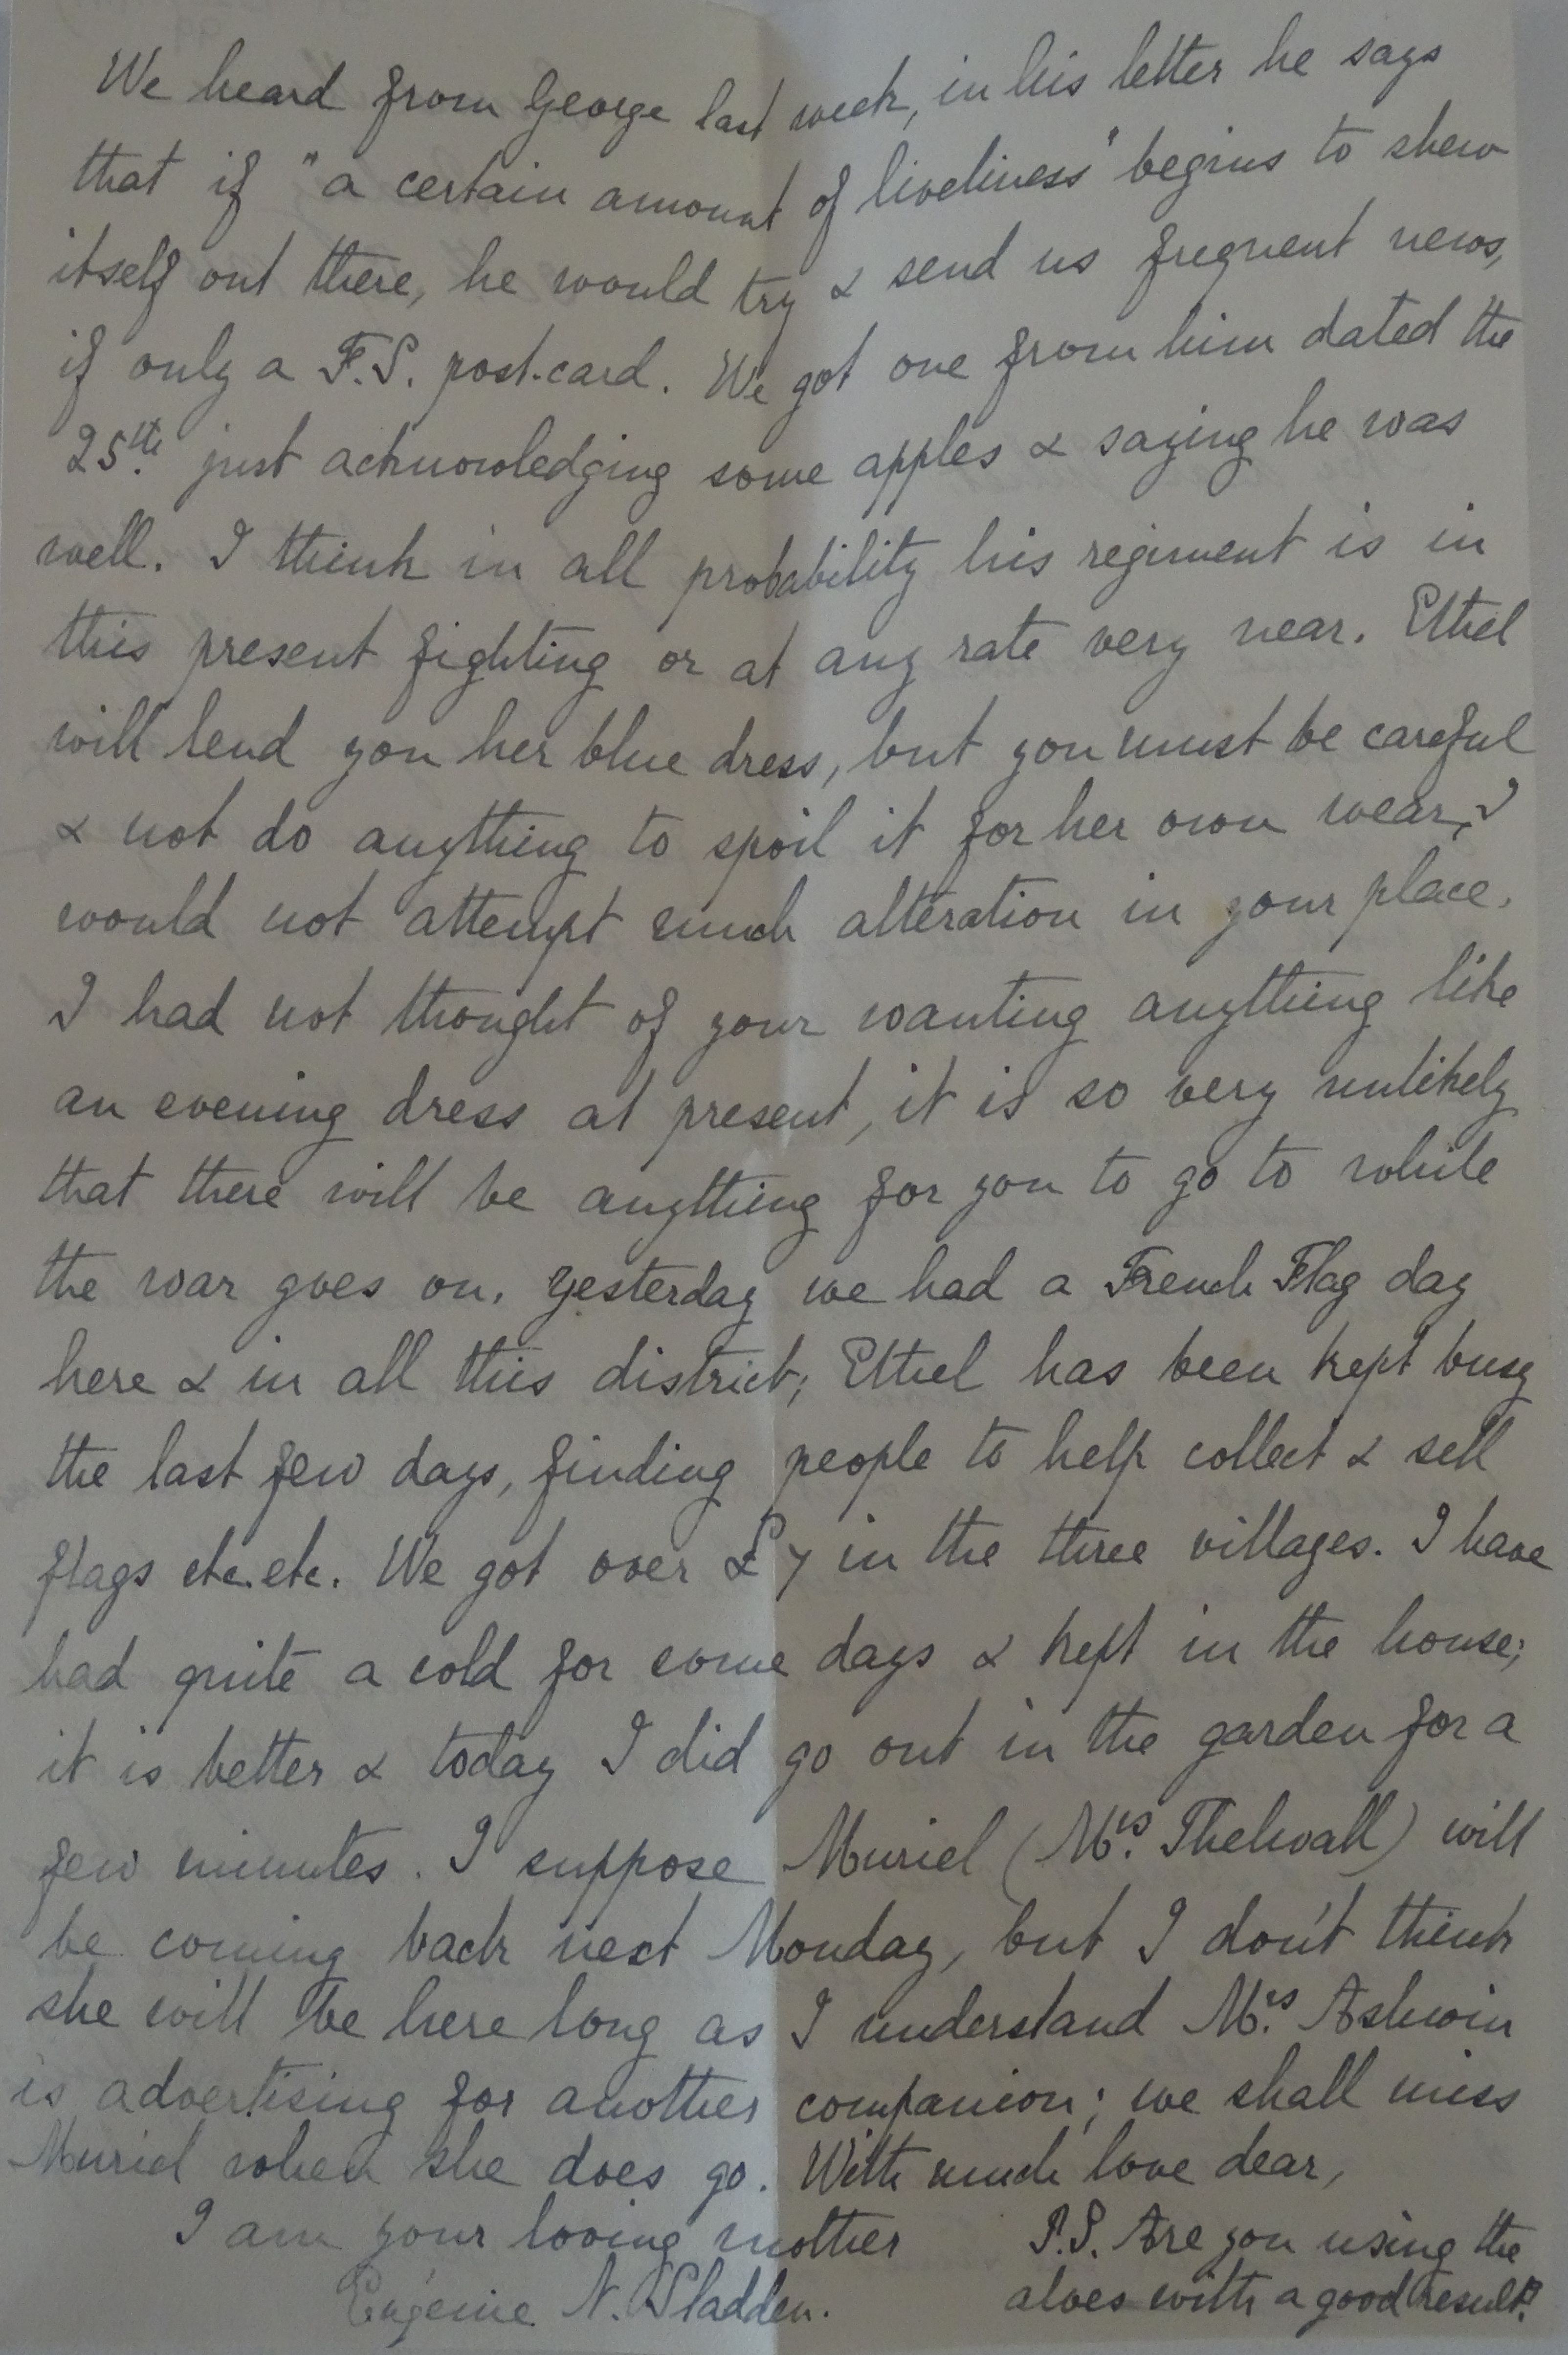 We heard from George last week, in his letter he says
that if "a certain amount of liveliness" begins to shew
itself out there, he would try & send us frequent news,
if only a F.S. post-card. We got one from him dated the
25th. just acknowledging some apples & saying he was
well. I think in all probability his regiment is in
this present fighting or at any rate very near. Ethel
will lend you her blue dress, but you must be careful
& not do anything to spoil it for her own wear, I
would not attempt much alteration in your place.
I had not thought of your wanting anything like
an evening dress at present, it is so very unlikely
that there will be anything for you to go to while
the war goes on. Yesterday we had a French Flag day
here & in all this district; Ethel has been kept busy
the last few days, finding people to help collect & sell
flags etc. etc. We got over £7 in the three villages. I have
had quite a cold for some days & kept in the house;
it is better & today I did go out in the garden for a
few minutes. I suppose Muriel (Mrs. Thelwall) will
be coming back next Monday, but I don't think
she will be here long as I understand Mrs. Ashwin
is advertising for another companion; we shall miss
Muriel when she does go. With much love dear,
I am your loving mother
Eugénie N. Sladden.
P.S. Are you using the
aloes with a good result?